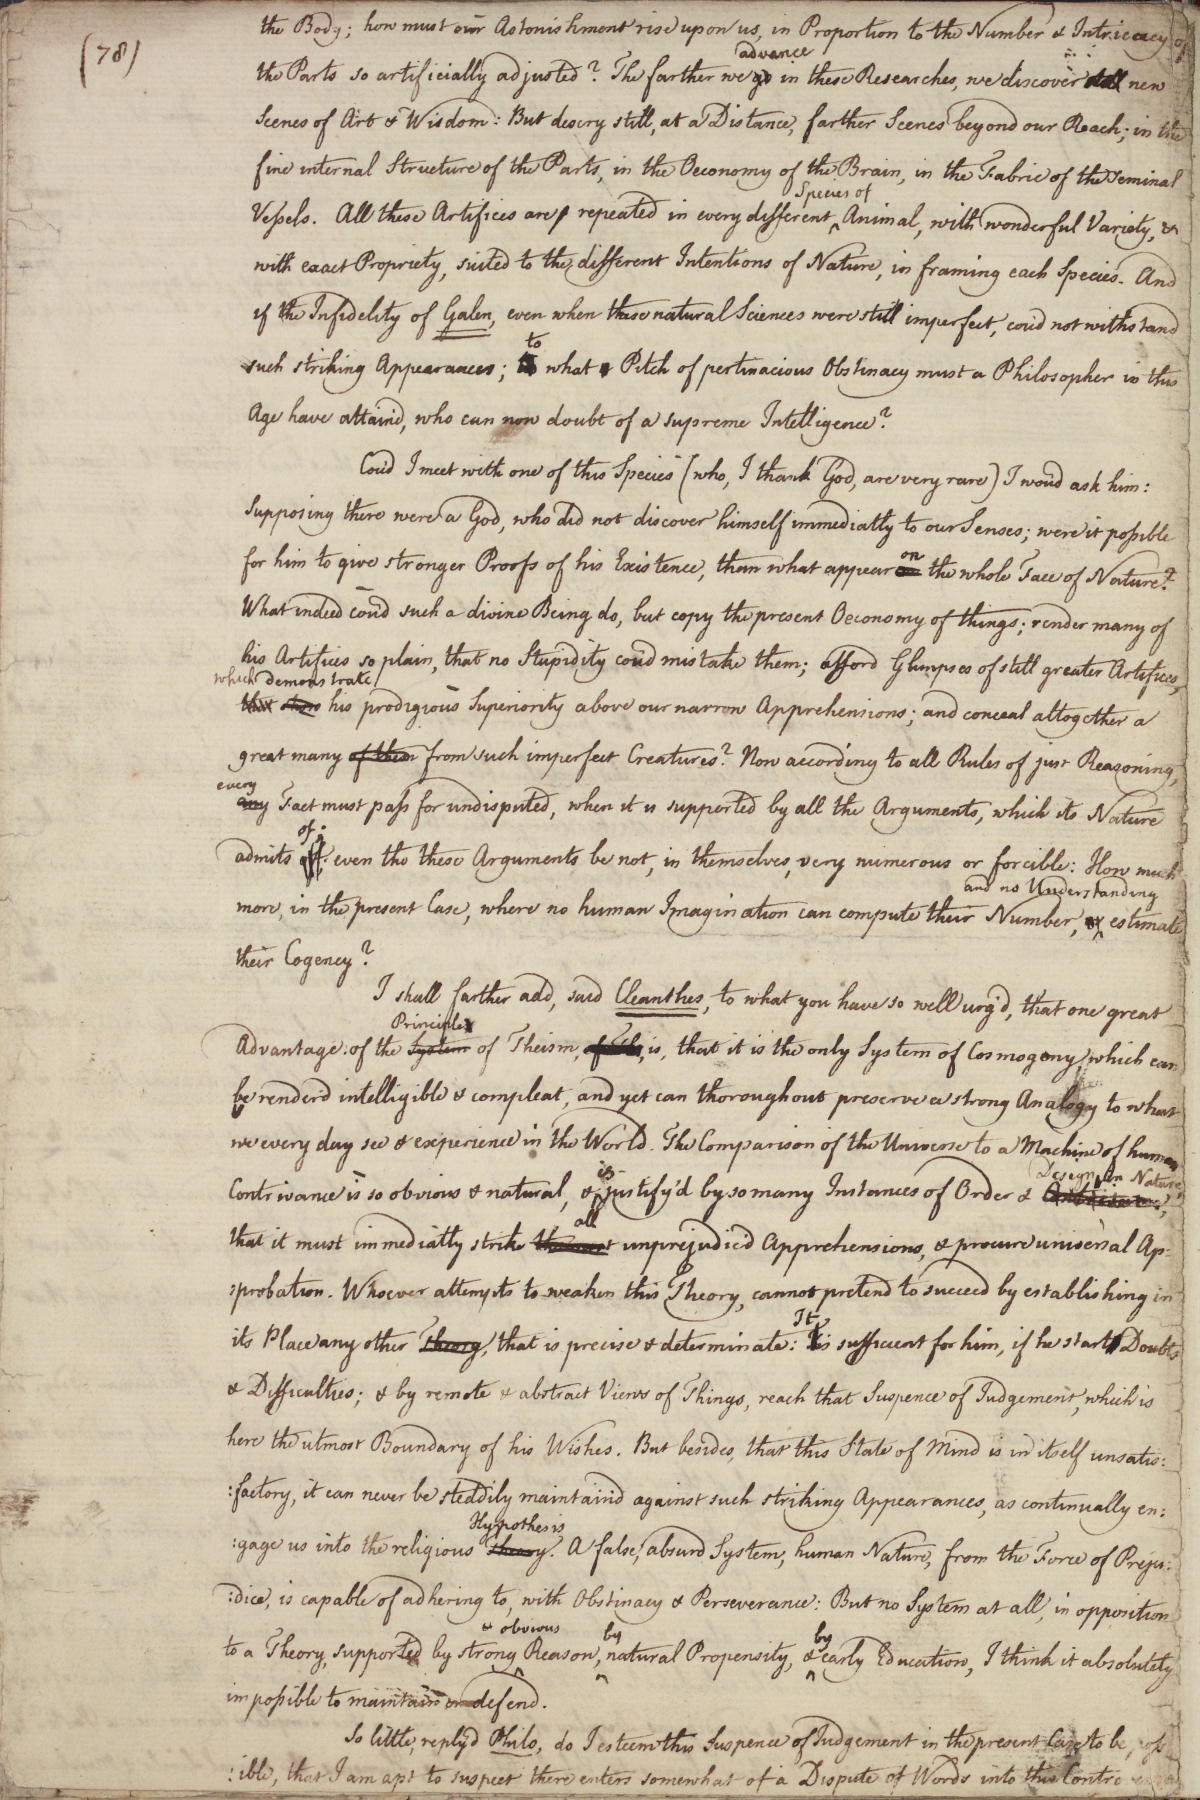 (78)
the Body; how must our Astonishment rise upon us, in Proportion to the Number & Intricacy of
advance
the Parts so artificially adjusted? The farther we go in these Researches, we discover still new
Scenes of Art & Wisdom: But descry still, at a Distance, farther Scenes beyond our Reach; in the
fine internal Structure of the Parts, in the Oeconomy of the Brain, in the Fabric of the seminal
Species of
Vessels. All these Artifices are repeated in every different ‸ Animal, with wonderful Variety, &
with exact Propriety, suited to the different Intentions of Nature, in framing each Species. And
if the Infidelity of Galen, even when these natural Sciences were still imperfect, cou'd not withstand
to
such striking Appearances; what Pitch of pertinacious Obstinacy must a Philosopher in this
Age have attain'd, who can now doubt of a supreme Intelligence?
Cou'd I meet with one of this Species (who, I thank God, are very rare) I wou'd ask him:
Supposing there were a God, who did not discover himself immediatly to our Senses; were it possible
on
for him to give stronger Proofs of his Existence, than what appear the whole Face of Nature?
What indeed cou'd such a divine Being do, but copy the present Oeconomy of things; render many of
his Artifices so plain, that no Stupidity cou'd mistake them; afford Glimpses of still greater Artifices,
which demonstrate
that show his prodigious Superiority above our narrow Apprehensions; and conceal altogether a
great many of them from such imperfect Creatures? Now according to all Rules of just Reasoning,
every
any Fact must pass for undisputed, when it is supported by all the Arguments, which its Nature
of;
admits of; even tho these Arguments be not, in themselves, very numerous or forcible: How much
and no Understanding
more, in the present Case, where no human Imagination can compute their Number, or ‸ estimate
their Cogency?
I shall farther add, said Cleanthes, to what you have so well urg'd, that one great
Principle
Advantage of the System of Theism is, that it is the only System of Cosmogony, which can
be render'd intelligible & compleat, and yet can thoroughout preserve a strong Analogy to what
we every day see & experience in the World. The Comparison of the Universe to a Machine of human
Design in Nature,
is
Contrivance is so obvious & natural, & ‸ justify'd by so many Instances of Order &
all
that it must immediatly strike the most unprejudic'd Apprehensions, & procure universal Ap-
:probation. Whoever attempts to weaken this Theory, cannot pretend to succeed by establishing in
It
its Place any other Theory, that is precise & determinate: is sufficient for him, if he start Doubts
& Difficulties; & by remote & abstract Views of Things, reach that Suspence of Judgement, which is
here the utmost Boundary of his Wishes. But besides, that this State of Mind is in itself unsatis:
:factory, it can never be steddily maintain'd against such striking Appearances, as continually en:
Hypothesis
:gage us into the religious Theory. A false, absurd System, human Nature, from the Force of Preju:
:dice, is capable of adhering to, with Obstinacy & Perseverance: But no System at all, in opposition
& obvious by by
to a Theory, supported by strong ‸ Reason, ‸ natural Propensity, & ‸ early Education, I think it absolutely
impossible to maintain or defend.
So little, reply'd Philo, do I esteem this Suspence of Judgement in the present Case to be, poss
:ible, that I am apt to suspect there enters somewhat of a Dispute of Words into this